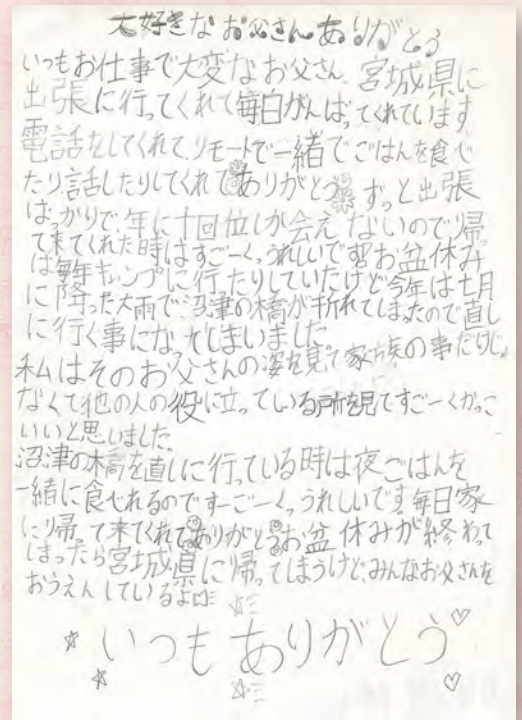 大好きなお父さんありがとう
いつもお仕事で大変なお父さん、宮城県に
出張に行ってくれて毎日がんばってくれています
電話をしてくれて、リモートで一緒でごはんを食べ
たり話したりしてくれてありがとう。ずっと出張
ばっかりで、年に十回位しか会えないので、帰っ
て来てくれた時はすごーくうれしいですお盆休み
は毎年キャンプに行ったりしていたけど今年は七月
に降った大雨で沼津の橋が折れてしまったので直し
に行く事になってしまいました
私はそのお父さんの姿を見て家族の事だけじゃ
なくて他の人の役に立っている所を見てすごーくかっこ
いいと思いました
沼津の橋を直しに行っている時は夜ごはんを
一緒に食べれるのですーごーくっうれしいです。毎日家
に帰って来てくれてありがとうお盆休みが終わって
しまったら宮城県に帰ってしまうけど、みんなお父さんを
おうえんしているよ
いつもありがとう